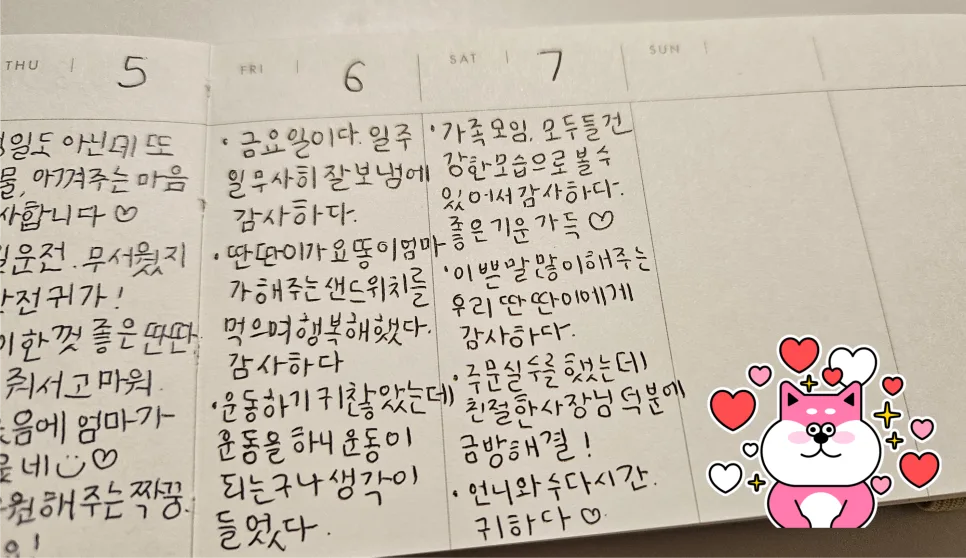 THU | 5
일도 아닌데 또
물, 아껴주는 마음
사합니다 ♡
운전. 무서웠지
안전귀가!
이 한껏 좋은 딴딴
줘서 고마워.
음에 엄마가
네 ♡
원해주는 짝꿍.
FRI | 6
· 금요일이다. 일주
일 무사히 잘 보냄에
감사하다.
· 딴딴이가 요똥이엄마
가 해주는 샌드위치를
먹으며 행복해했다.
감사하다
· 운동하기 귀찮았는데
운동을 하니 운동이
되는구나 생각이
들었다.
SAT | 7
· 가족모임. 모두들 건
강한 모습으로 볼 수
있어서 감사하다.
좋은 기운 가득 ♡
· 이쁜말 많이 해주는
우리 딴딴이에게
감사하다.
· 주문실수를 했는데
친절한 사장님 덕분에
금방해결!
· 언니와 수다시간.
귀하다 ♡
SUN |